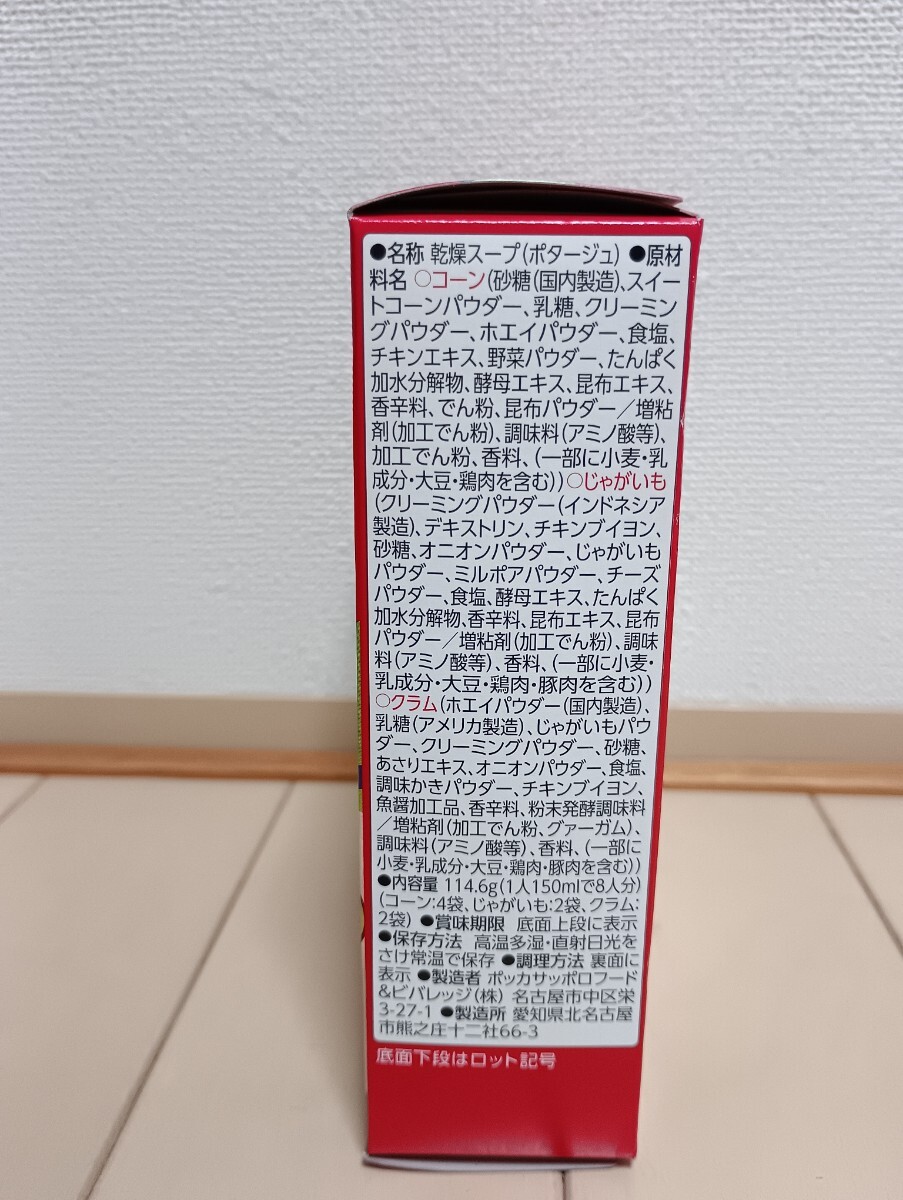 ●名称 乾燥スープ(ポタージュ) ●原材
料名 ○コーン(砂糖(国内製造)、スイー
トコーンパウダー、乳糖、クリーミン
グパウダー、ホエイパウダー、食塩、
チキンエキス、野菜パウダー、たんぱく
加水分解物、酵母エキス、昆布エキス、
香辛料、でん粉、昆布パウダー／増粘
剤(加工でん粉)、調味料(アミノ酸等)、
加工でん粉、香料、(一部に小麦・乳
成分・大豆・鶏肉を含む)) ○じゃがいも
(クリーミングパウダー(インドネシア
製造)、デキストリン、チキンブイヨン、
砂糖、オニオンパウダー、じゃがいも
パウダー、ミルポアパウダー、チーズ
パウダー、食塩、酵母エキス、たんぱく
加水分解物、香辛料、昆布エキス、昆布
パウダー／増粘剤(加工でん粉)、調味
料(アミノ酸等)、香料、(一部に小麦・
乳成分・大豆・鶏肉・豚肉を含む))
○クラム(ホエイパウダー(国内製造)、
乳糖(アメリカ製造)、じゃがいもパウ
ダー、クリーミングパウダー、砂糖、
あさりエキス、オニオンパウダー、食塩、
調味かきパウダー、チキンブイヨン、
魚醤加工品、香辛料、粉末発酵調味料
／増粘剤(加工でん粉、グァーガム)、
調味料(アミノ酸等)、香料、(一部に
小麦・乳成分・大豆・鶏肉・豚肉を含む))
●内容量 114.6g(1人150mlで8人分)
(コーン:4袋、じゃがいも:2袋、クラム:
2袋) ●賞味期限 底面上段に表示
●保存方法 高温多湿・直射日光を
さけ常温で保存 ●調理方法 裏面に
表示 ●製造者 ポッカサッポロフード
&ビバレッジ(株) 名古屋市中区栄
3-27-1 ●製造所 愛知県北名古屋
市熊之庄十二社66-3
底面下段はロット記号